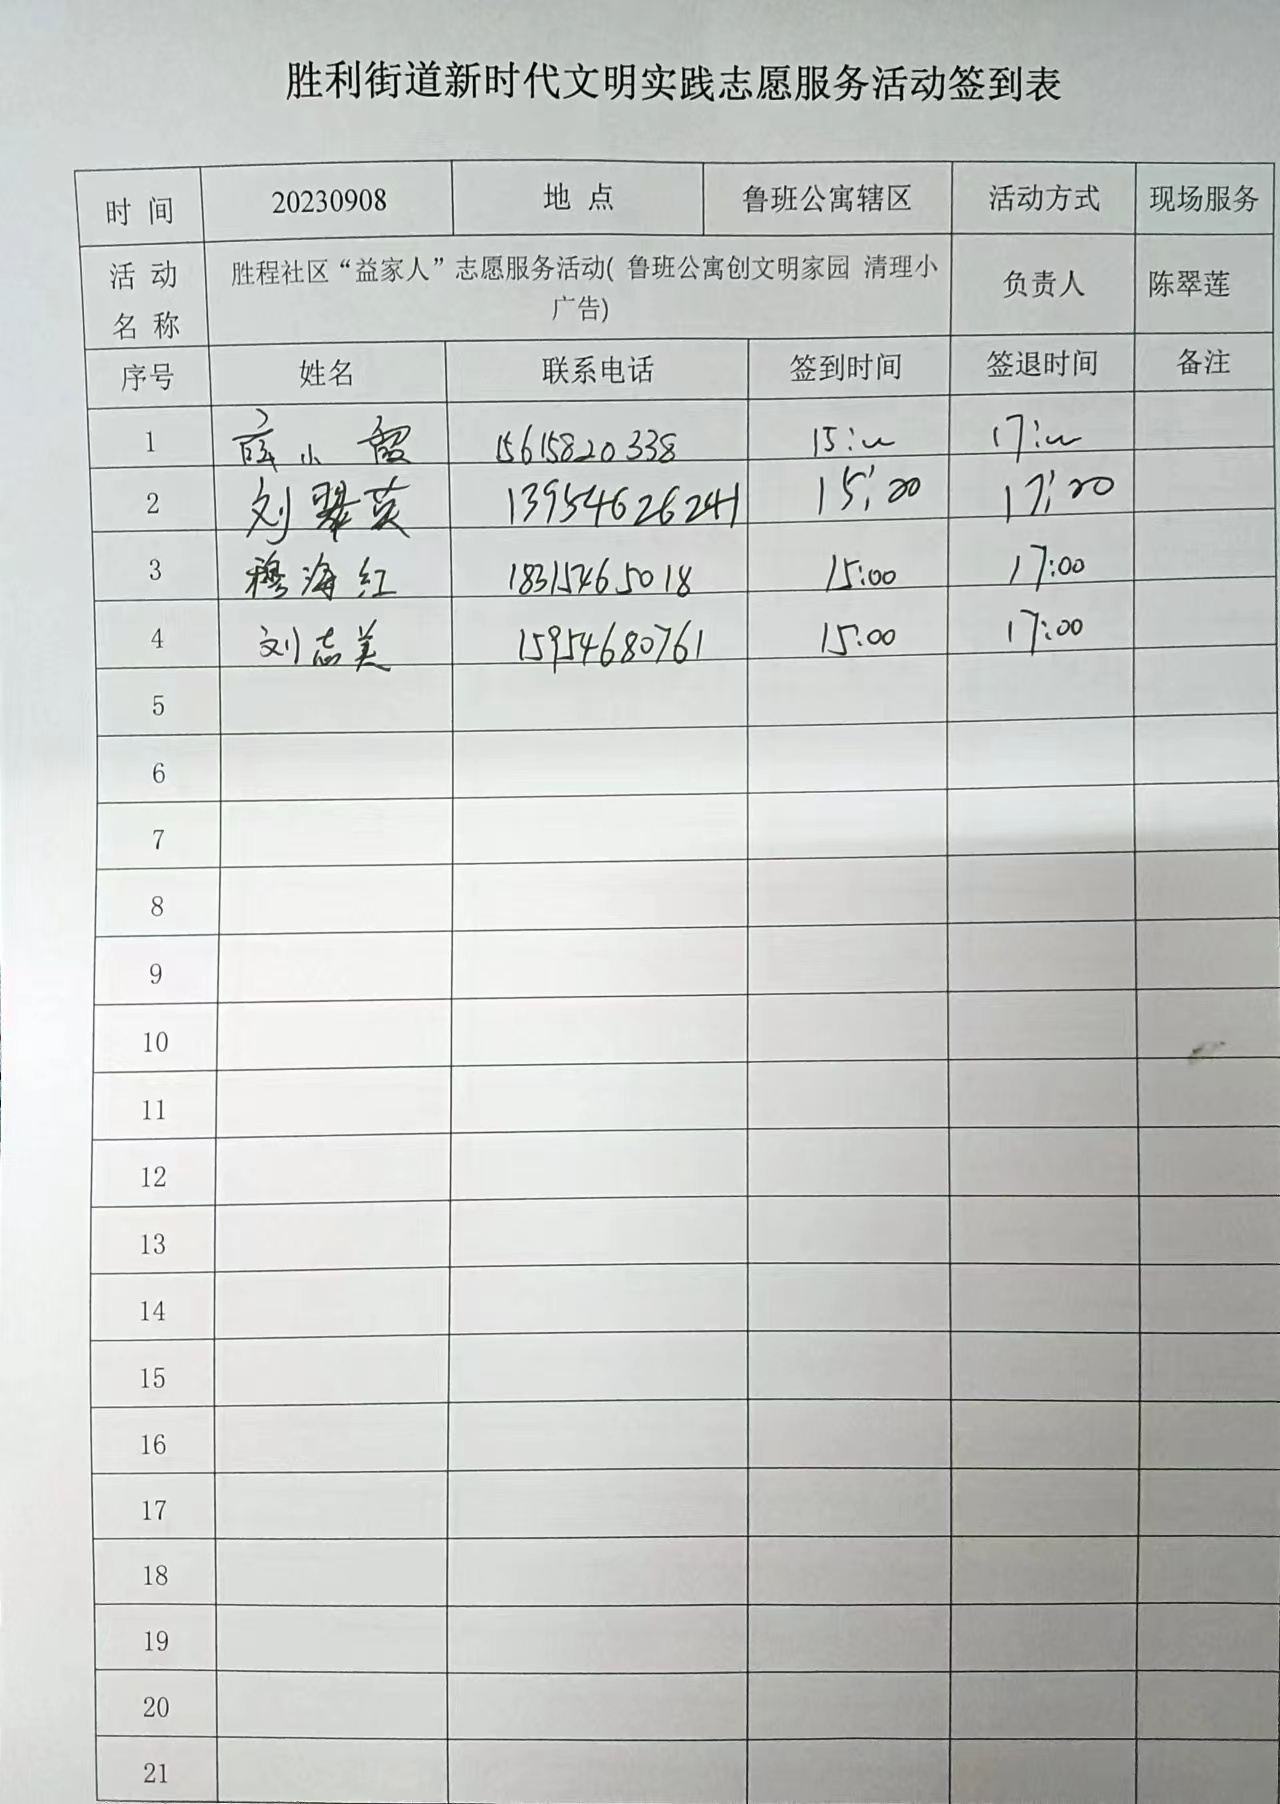 胜利街道新时代文明实践志愿服务活动签到表
时 间 20230908 地 点 鲁班公寓辖区 活动方式 现场服务
活 动 名 称 胜程社区“益家人”志愿服务活动( 鲁班公寓创文明家园 清理小
广告) 负责人 陈翠莲
序号 姓名 联系电话 签到时间 签退时间 备注
1 薛小霞 15615820338 15: 17:
2 刘翠英 13954626241 15:00 17:00
3 穆海红 18315465018 15:00 17:00
4 刘志美 15954680761 15:00 17:00
5
6
7
8
9
10
11
12
13
14
15
16
17
18
19
20
21